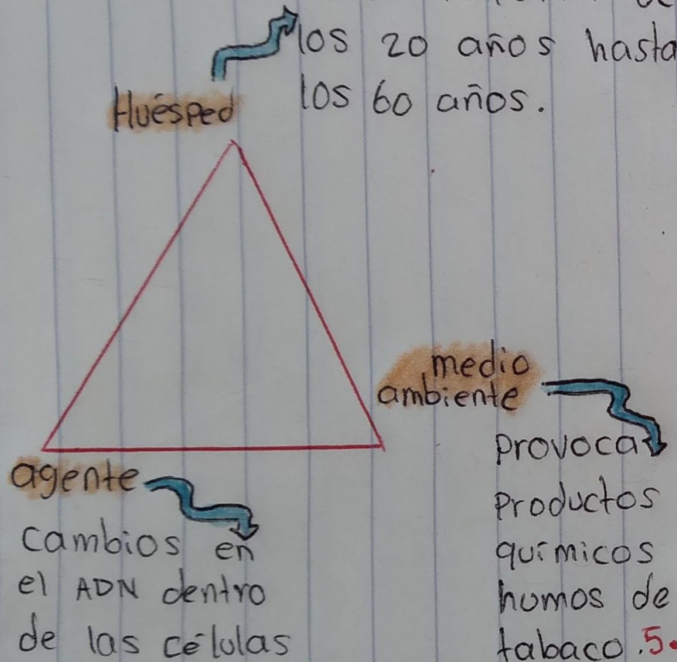 los 20 años hasta
los 60 años.
Huésped
medio
ambiente
provoca
productos
químicos
humos de
tabaco.5.
agente
cambios en
el ADN dentro
de las células